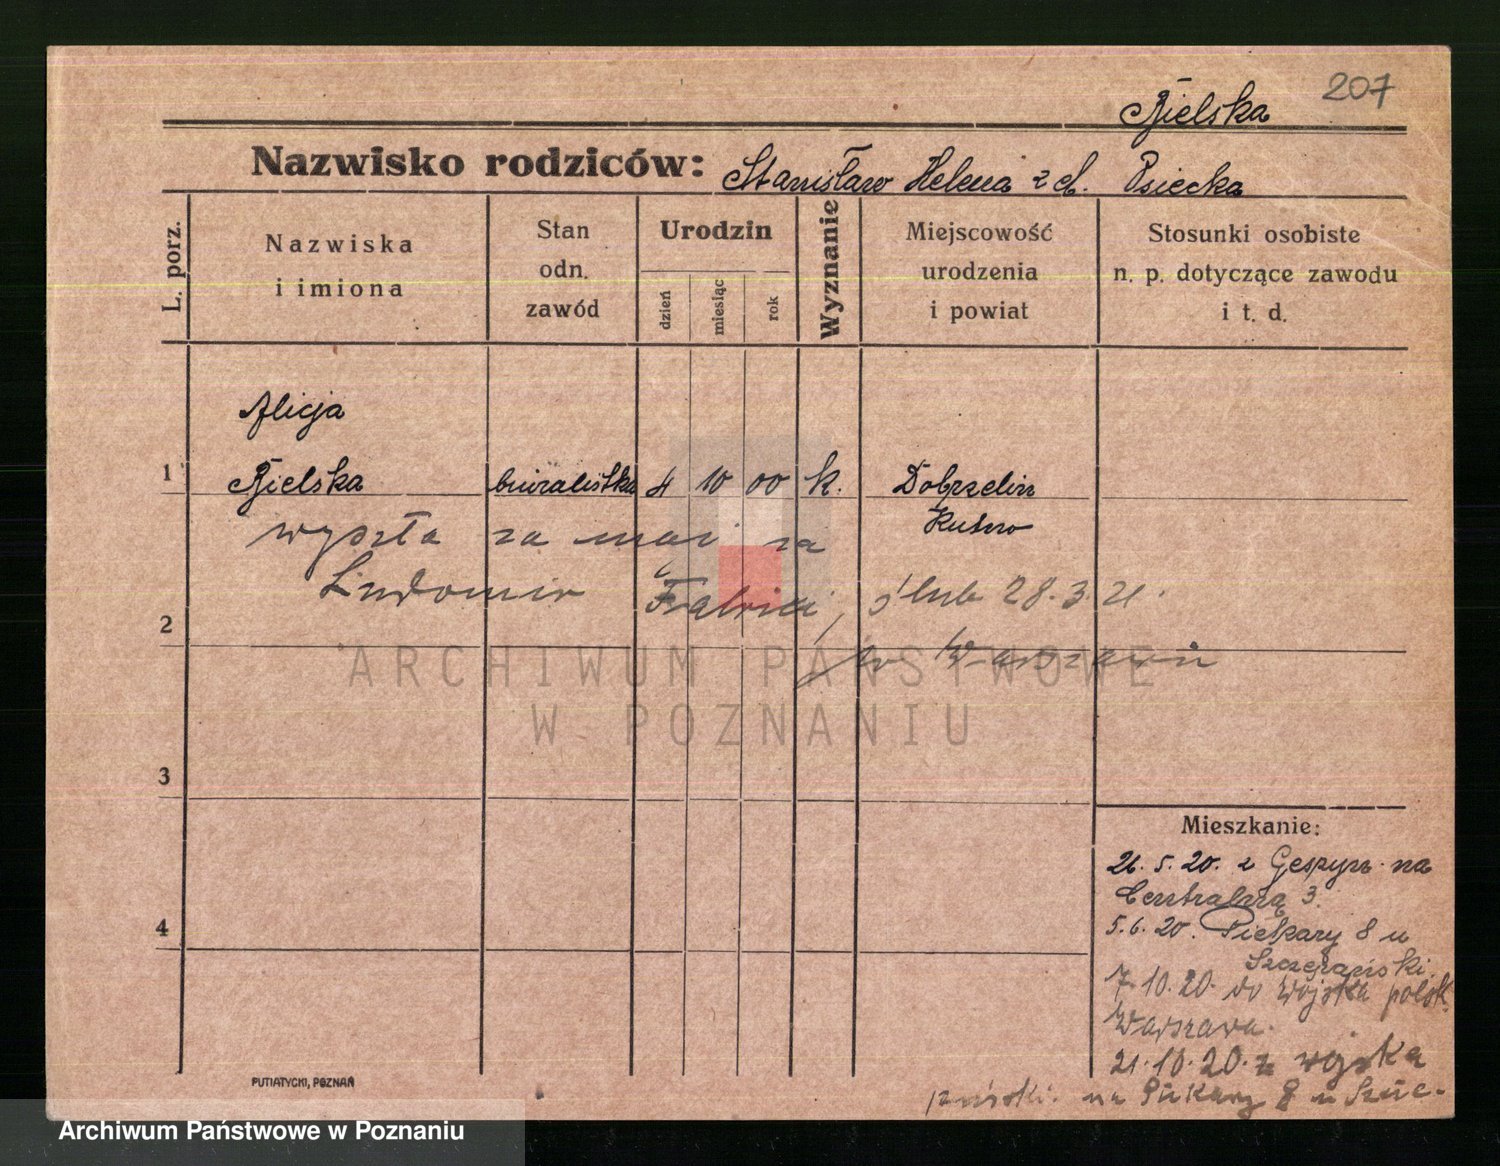 207
Bielska
Nazwisko rodziców: Stanisław Helena z d. Osiecka
L. porz.
Nazwiska i imiona
Stan odn. zawód
Urodzin
dzień
miesiąc
rok
Wyznanie
Miejscowość urodzenia i powiat
Stosunki osobiste n. p. dotyczące zawodu i t. d.
Alicja
1 Bielska biuralistka 4 10 00 k. Dobrzelin
Kutno
wyszła za mąż za
Ludomir ślub 28.3.21.
2
w Warszawie
3
4
Mieszkanie:
26.5.20. z Gespyn. na
Centralną 3.
5.6.20. Piekary 8 u
Szczepański.
7.10.20. do wojska polsk.
Warszawa.
21.10.20. z wojska
na Piekary 8 u Szcze-
pański.
PUTIATYCKI, POZNAŃ
ARCHIWUM PAŃSTWOWE
W POZNANIU
Archiwum Państwowe w Poznaniu